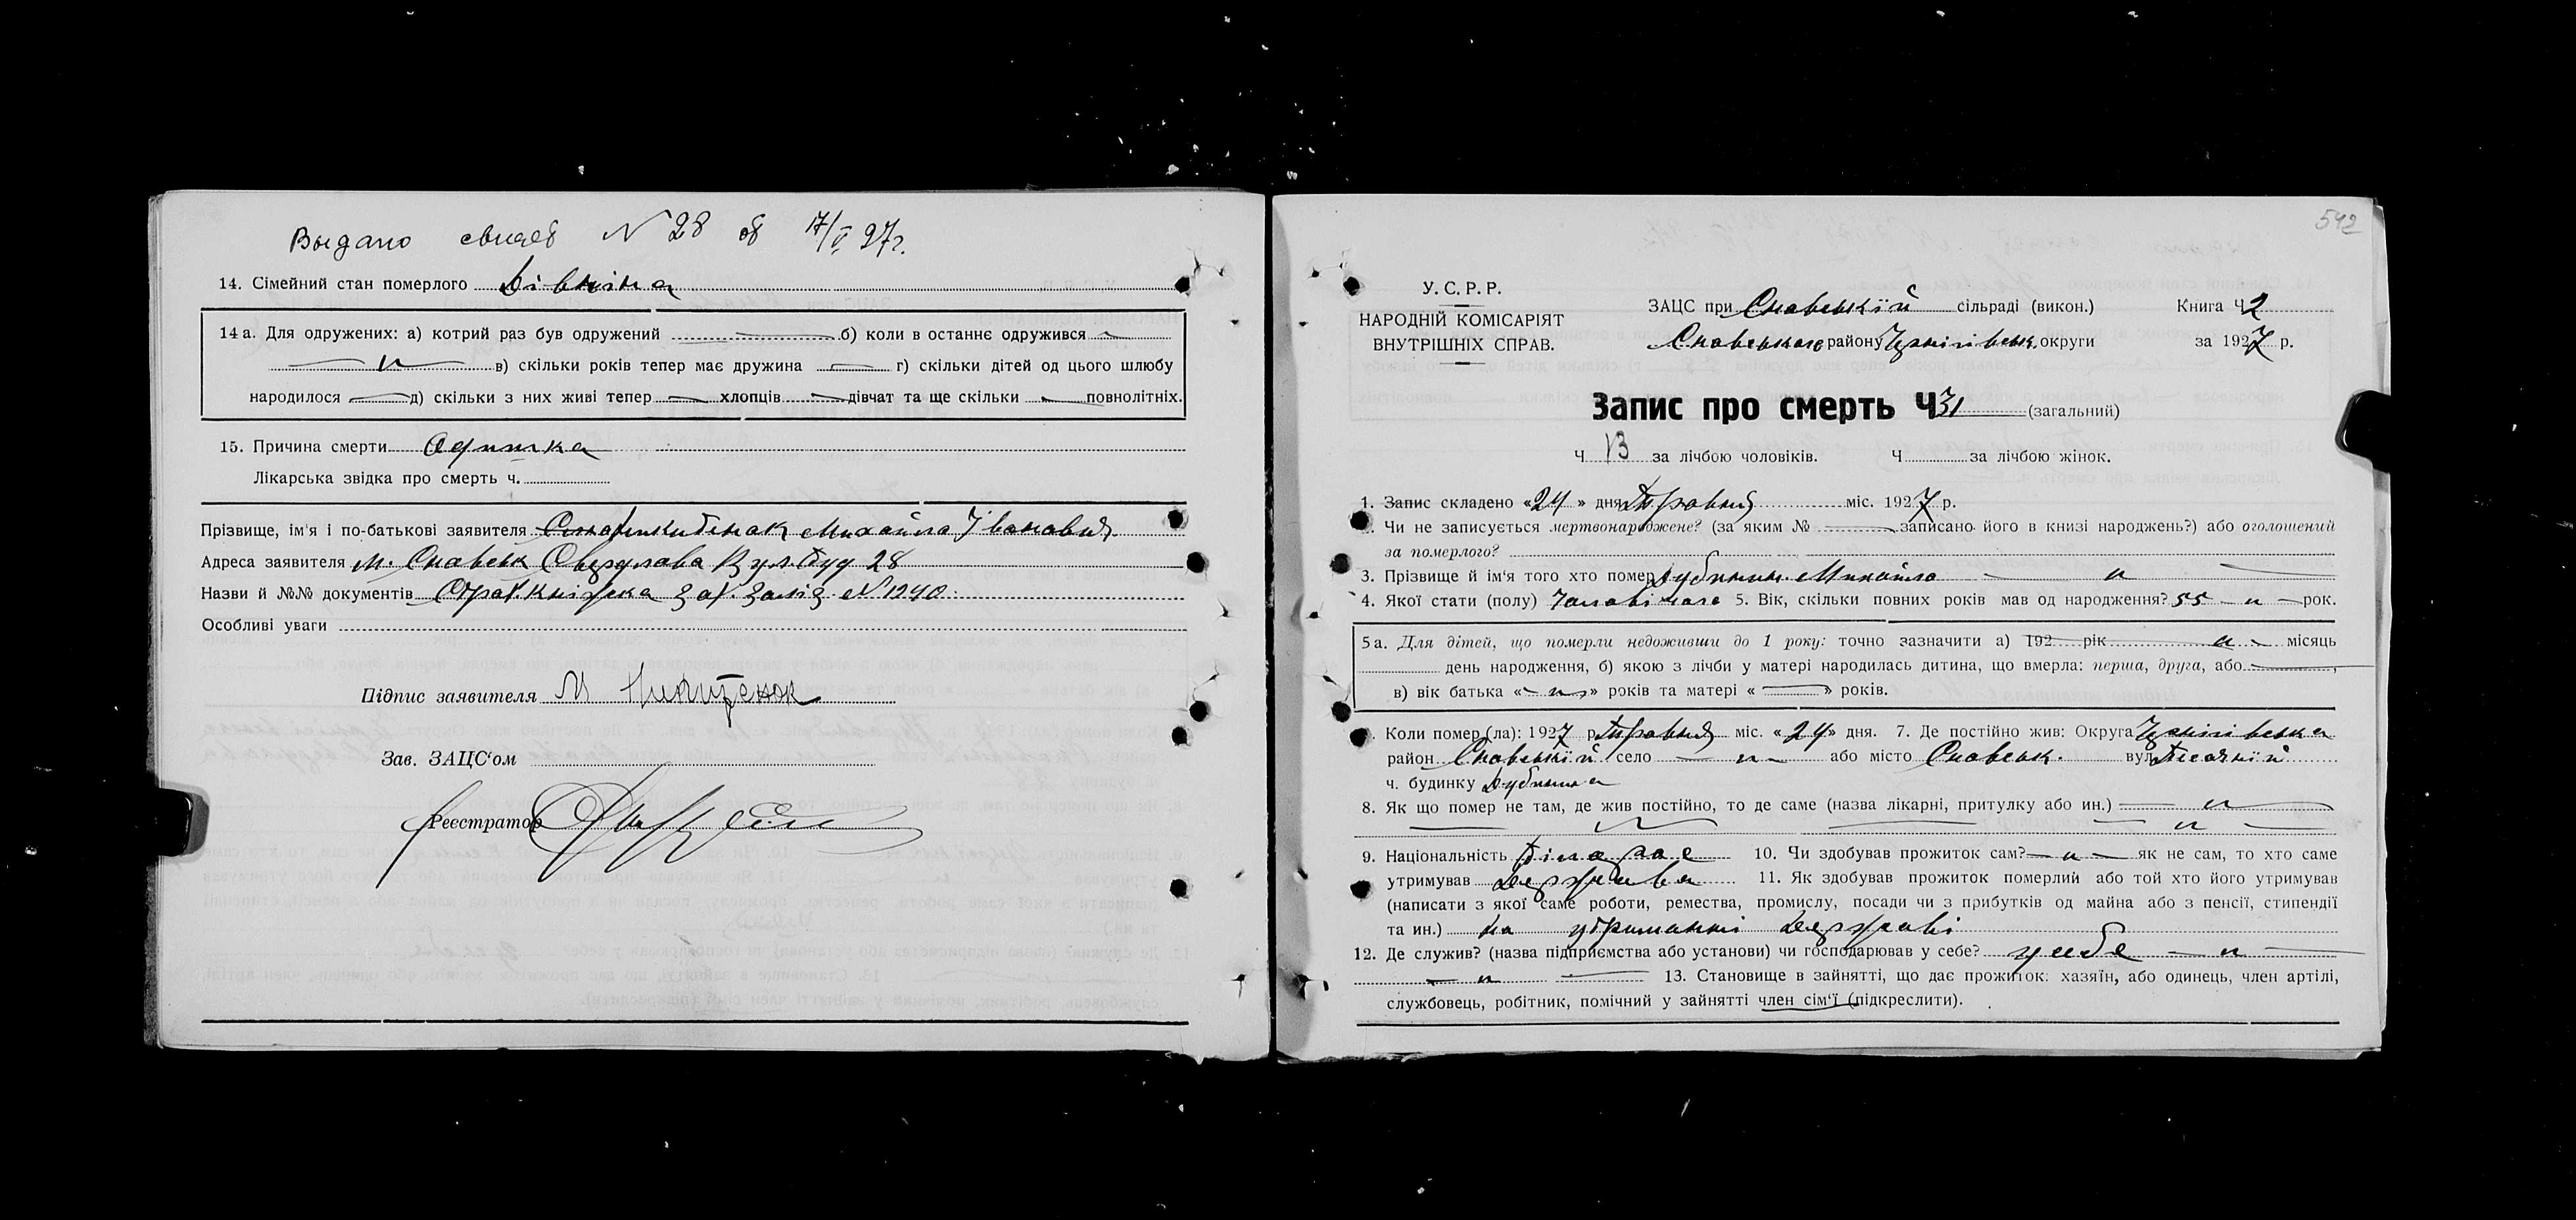 Выдано свидет N 28 об 17/V 27г.
14. Сімейний стан померлого Дівчіна
14 а. Для одружених: а) котрий раз був одружений б) коли в останнє одружився
в) скільки років тепер має дружина г) скільки дітей од цього шлюбу
народилося д) скільки з них живі тепер хлопців дівчат та ще скільки повнолітніх.
15. Причина смерти Одишка
Лікарська звідка про смерть ч.
Прізвище, ім'я і по-батькові заявителя Михайло Іванович
Адреса заявителя м. Сновськ Свердлова Вул. Буд 28
Назви й №№ документів Страх. Книжка Зах. Заліз. N 1290.
Особливі уваги
Підпис заявителя М
Зав. ЗАЦС'ом
Реєстратор
592
У. С. Р. Р.
НАРОДНІЙ КОМІСАРІЯТ
ВНУТРІШНІХ СПРАВ.
ЗАЦС при Сновській сільраді (викон.) Книга Ч 2
Сновського району Чернігівськ. округи за 1927 р.
Запис про смерть Ч 31 (загальний)
Ч 13 за лічбою чоловіків. Ч за лічбою жінок.
1. Запис складено «24» дня Травня міс. 1927 р.
Чи не записується мертвонароджене? (за яким № записано його в книзі народжень?) або оголошений
за померлого?
3. Прізвище й ім'я того хто помер Михайло
4. Якої стати (полу) Чоловічого 5. Вік, скільки повних років мав од народження? 55 рок.
5 а. Для дітей, що померли недоживши до 1 року: точно зазначити а) 192 рік місяць
день народження, б) якою з лічби у матері народилась дитина, що вмерла: перша, друга, або ,
в) вік батька « » років та матері « » років.
Коли помер (ла): 1927 р. Травня міс. «24» дня. 7. Де постійно жив: Округа Чернігівська
район Сновській село або місто Сновськ. вул. Песочній
ч. будинку Дубініна
8. Як що помер не там, де жив постійно, то де саме (назва лікарні, притулку або ин.)
9. Національність 10. Чи здобував прожиток сам? як не сам, то хто саме
утримував Держава 11. Як здобував прожиток померлий або той хто його утримував
(написати з якої саме роботи, ремества, промислу, посади чи з прибутків од майна або з пенсії, стипендії
та ин.) на утриманні Державі
12. Де служив? (назва підприємства або установи) чи господарював у себе? у себе
13. Становище в зайнятті, що дає прожиток: хазяїн, або одинець, член артілі,
службовець, робітник, помічний у зайнятті член сім'ї (підкреслити).